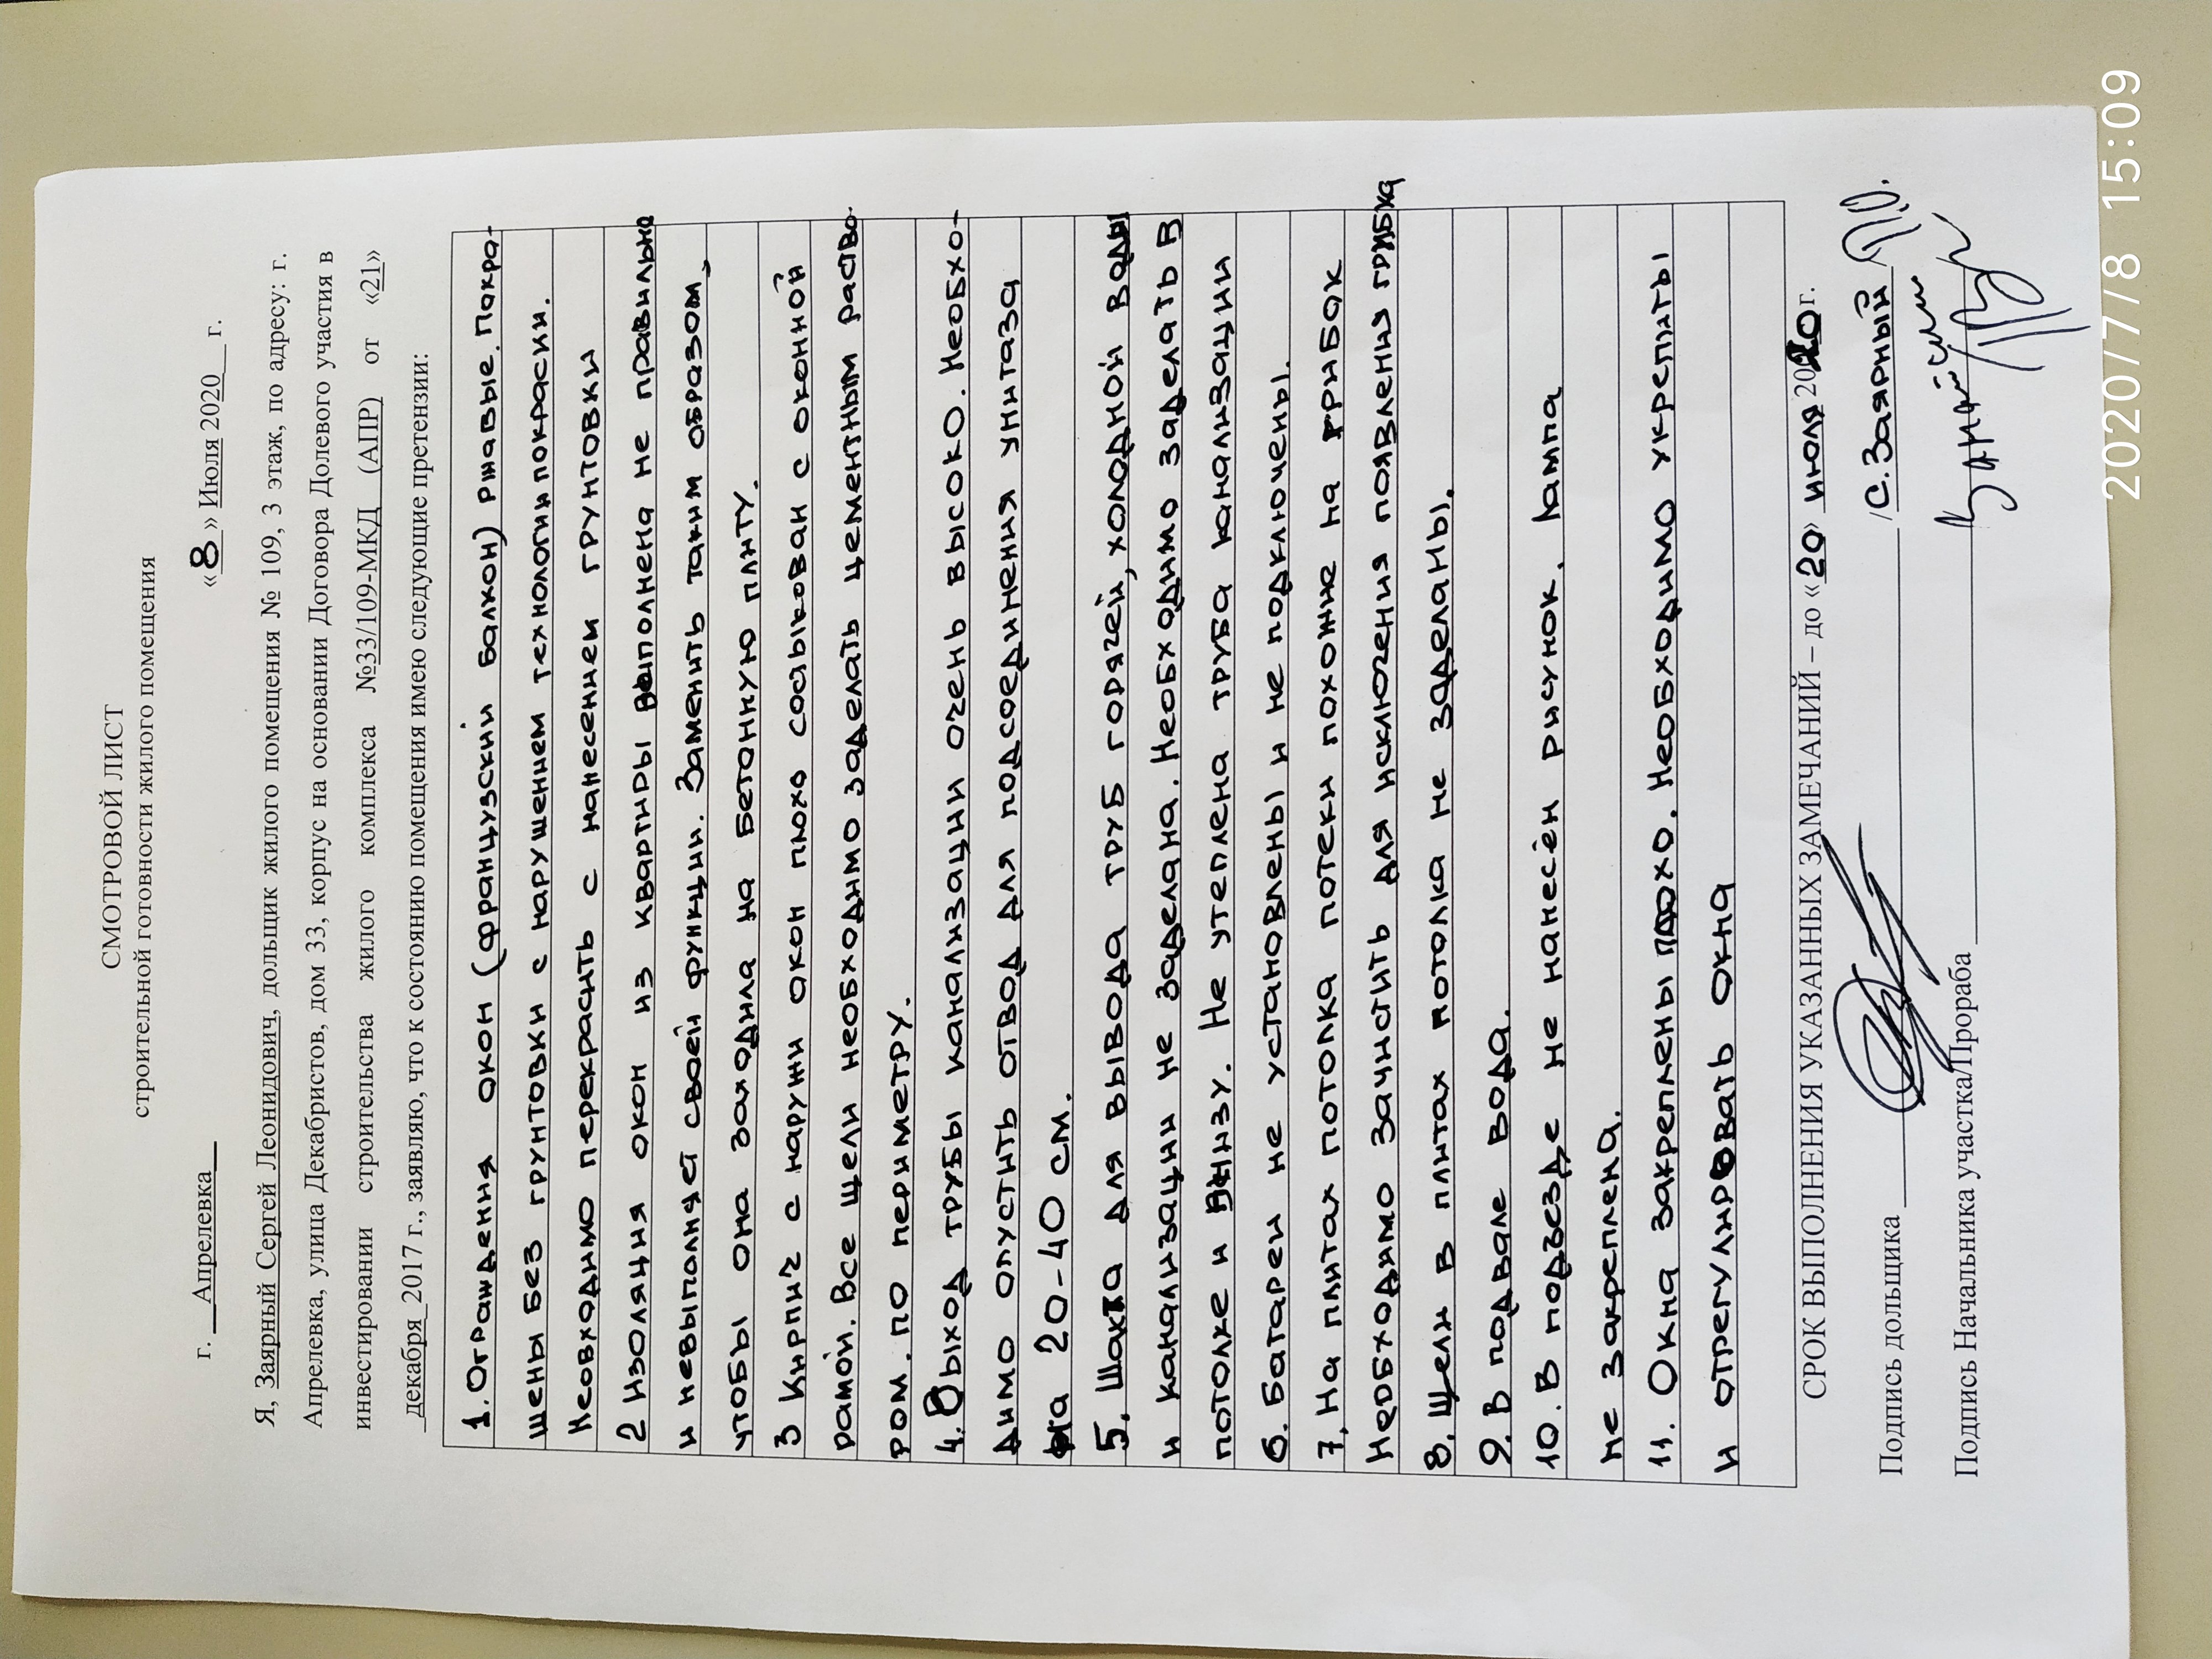 СМОТРОВОЙ ЛИСТ
строительной готовности жилого помещения
г. Апрелевка «8» Июля 2020 г.
Я, Заярный Сергей Леонидович, дольщик жилого помещения № 109, 3 этаж, по адресу: г.
Апрелевка, улица Декабристов, дом 33, корпус на основании Договора Долевого участия в
инвестировании строительства жилого комплекса №33/109-МКД (АПР) от «21»
декабря 2017 г., заявляю, что к состоянию помещения имею следующие претензии:
1. Ограждения окон (французский балкон) ржавые. Покра-
шены без грунтовки с нарушением технологии покраски.
Необходимо перекрасить с нанесением грунтовки
2 Изоляция окон из квартиры выполнена не правильно
и невыполняет своей функции. Заменить таким образом,
чтобы она заходила на бетонную плиту.
3 Кирпич с наружи окон плохо состыкован с оконной
рамой. Все щели необходимо заделать цементным раство-
ром. по периметру.
4. Выход трубы канализации очень высоко. Необхо-
димо опустить отвод для подсоединения унитаза
на 20-40 см.
5. Шахта для вывода труб горячей, холодной воды
и канализации не заделана. Необходимо заделать в
потолке и внизу. Не утеплена труба канализации
6. Батареи не установлены и не подключены.
7. На плитах потолка потеки похожие на грибок
Необходимо зачистить для исключения появления грибка
8. Щели в плитах потолка не заделаны.
9. В подвале вода.
10. В подъезде не нанесён рисунок. Лампа
не закреплена.
11. Окна закреплены плохо. Необходимо укрепить
и отрегулировать окна
СРОК ВЫПОЛНЕНИЯ УКАЗАННЫХ ЗАМЕЧАНИЙ – до «20» июля 2020 г.
Подпись дольщика /С. Заярный
Подпись Начальника участка/Прораба
2020/7/8 15:09